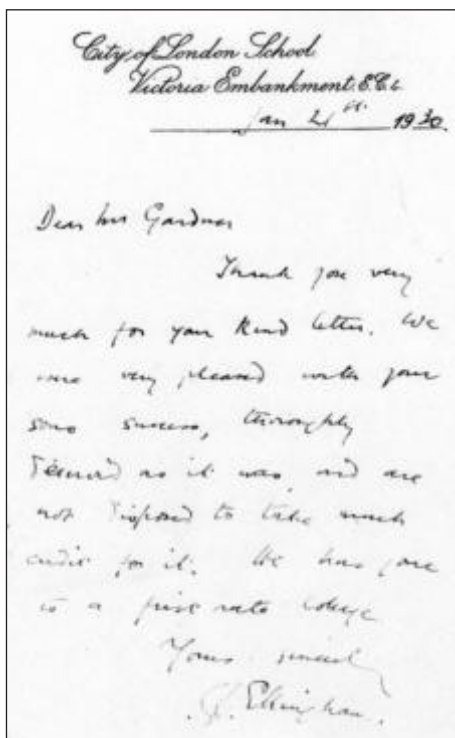 City of London School
Victoria Embankment. E.C.4.
Jan 21st. 1930.
Dear Mrs Gardner
Thank you very
much for your kind letter. We
were very pleased with your
sons success, thoroughly
deserved as it was, and are
not disposed to take much
credit for it. He has gone
to a first rate college
Yours sincerely
Ellingham.